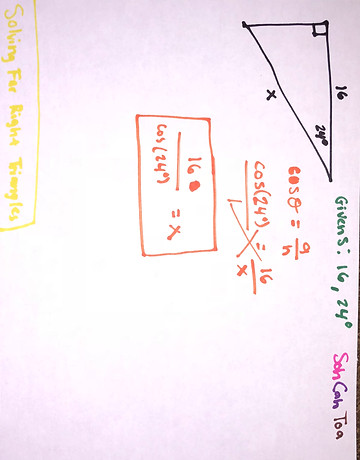 Solving For Right Triangles
Givens: 16, 24° Soh Cah Toa
16
24°
x
cosθ = a/h
cos(24°) = 16/x
16/cos(24°) = x